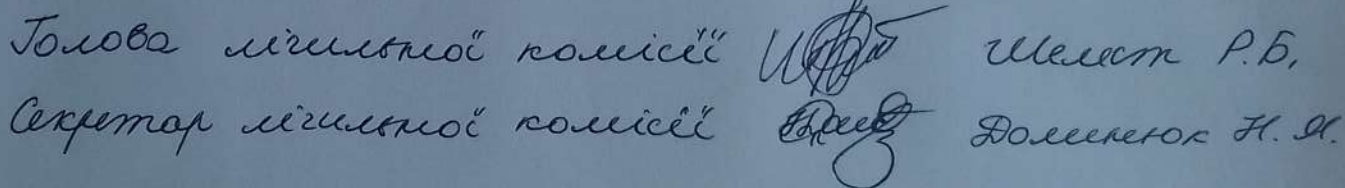 Голова лічильної комісії Шелест Р.Б.
Секретар лічильної комісії Доминюк Н.Я.